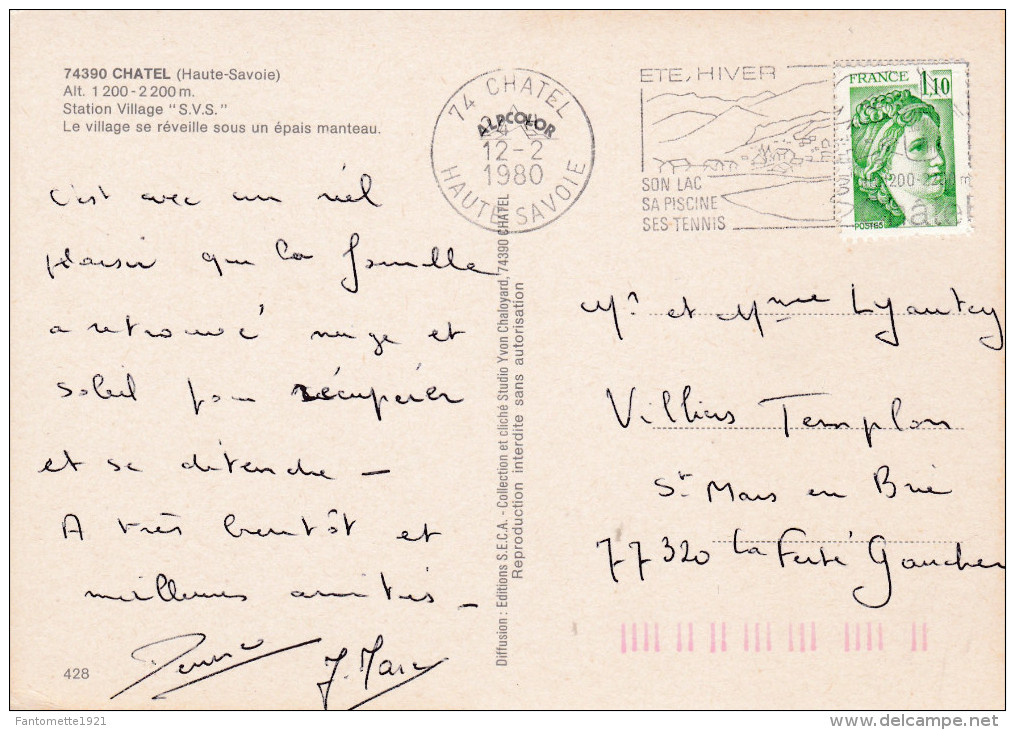 74390 CHATEL (Haute-Savoie)
Alt. 1 200 - 2 200 m.
Station Village "S.V.S."
Le village se réveille sous un épais manteau.
C'est avec un réel
plaisir que la famille
a retrouvé neige et
soleil pour récupérer
et se détendre —
A très bientôt et
meilleures amitiés —
J. Marc
428
74 CHATEL
ALPCOLOR
12-2
1980
HAUTE SAVOIE
ETE, HIVER
SON LAC
SA PISCINE
SES TENNIS
1200-2200 m
FRANCE 1,10
POSTES
Diffusion : Editions S.E.C.A. - Collection et cliché Studio Yvon Chaloyard, 74390 CHATEL
Reproduction interdite sans autorisation
Mr. et Mme Lyautey
Villiers Templon
St Mars en Brie
77320 La Ferté Gaucher
Fantomette1921
delcampe.net